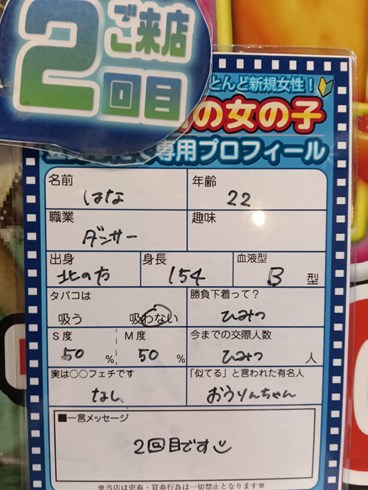 ご来店
2回目
とんど新規女性!
の女の子
専用プロフィール
名前 はな
年齢 22
職業 ダンサー
趣味
出身 北の方
身長 154
血液型 B 型
タバコは 吸う 吸わない
勝負下着って? ひみつ
S度 50 %
M度 50 %
今までの交際人数 ひみつ 人
実は○○フェチです なし
「似てる」と言われた有名人 おうりんちゃん
■一言メッセージ
2回目です
※当店は売春・買春行為は一切禁止となります※